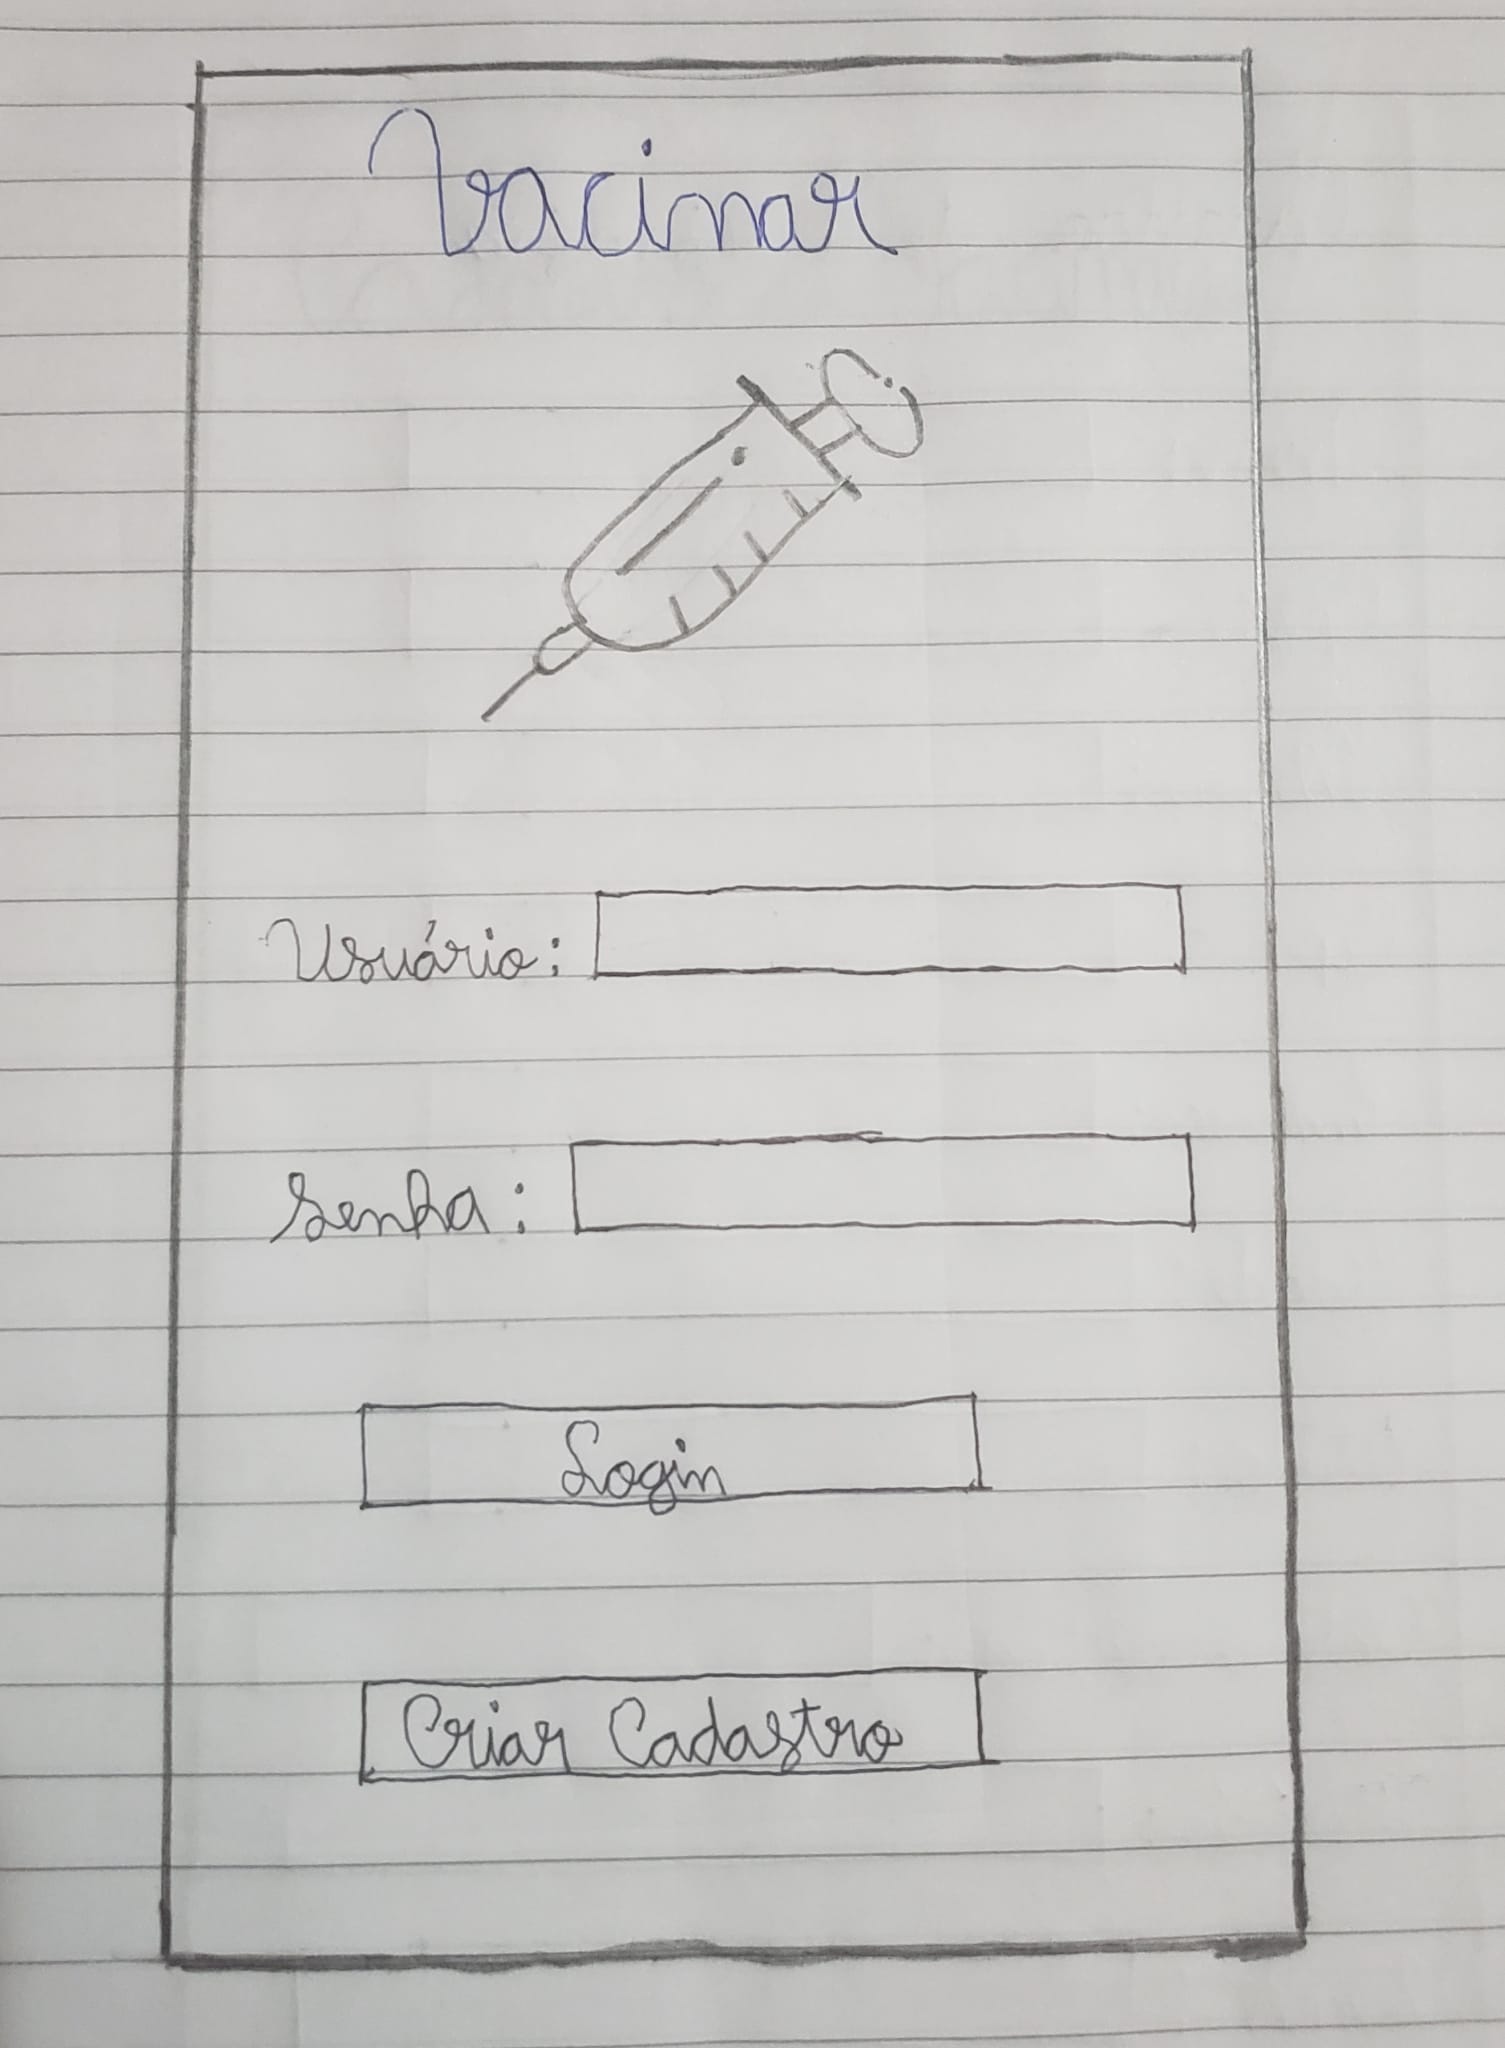 Vacinar
Usuário:
Senha:
Login
Criar Cadastro